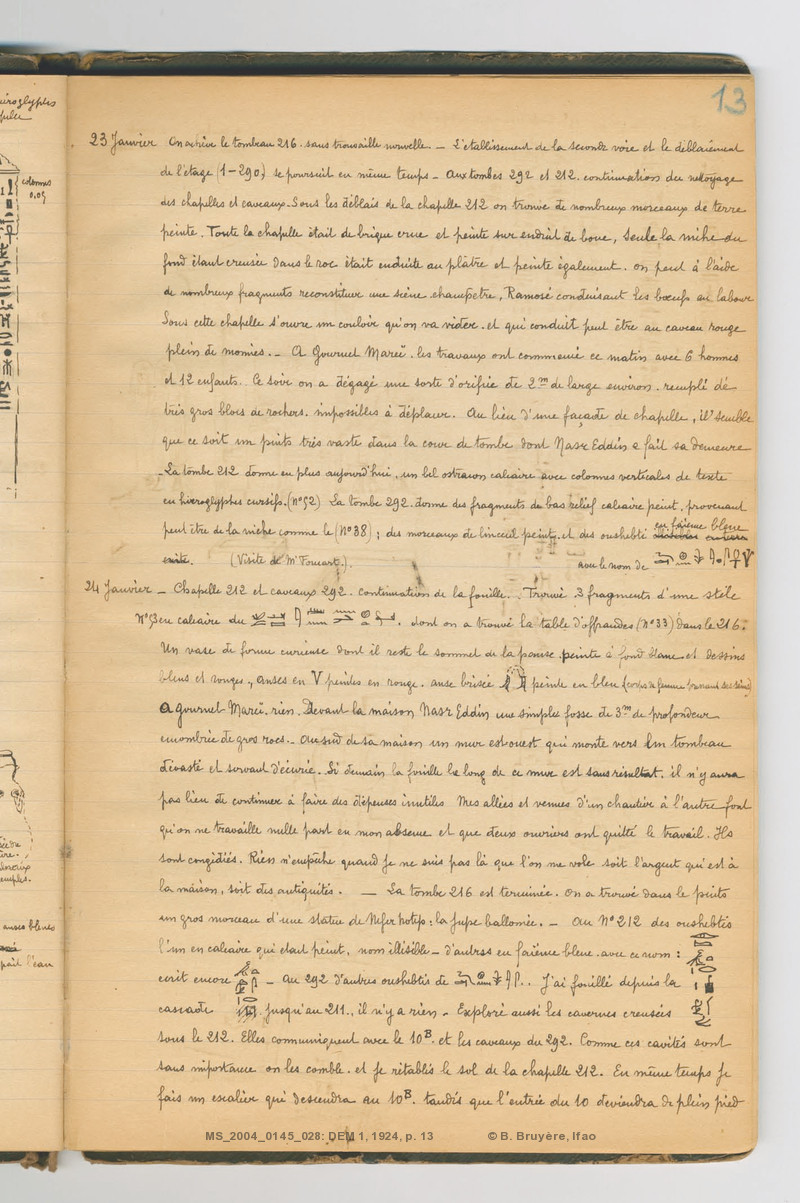 13
23 Janvier On achève le tombeau 216. sans trouvaille nouvelle. — L'établissement de la seconde voie et le déblaiement
de l'étage (1-290) se poursuit en même temps - Aux tombes 292 et 212. continuation du nettoyage
des chapelles et caveaux. Sous les déblais de la chapelle 212 on trouve de nombreux morceaux de terre
peinte. Toute la chapelle était de brique crue et peinte sur enduit de boue, seule la niche du
fond étant creusée dans le roc était enduite au plâtre et peinte également. on peut à l'aide
de nombreux fragments reconstituer une scène champêtre, Ramosé conduisant les bœufs au labour
Sous cette chapelle s'ouvre un couloir qu'on va vider. et qui conduit peut être au caveau rouge
plein de momies. - A Gournet Mareï. les travaux ont commencé ce matin avec 6 hommes
et 12 enfants. Ce soir on a dégagé une sorte d'orifice de 2m de large environ. remplé de
très gros blocs de rochers. impossibles à déplacer. Au lieu d'une façade de chapelle, il semble
que ce soit un puits très vaste dans la cour de tombe dont Nasr Eddin a fait sa demeure
- La tombe 212 donne en plus aujourd'hui, un bel ostracon calcaire avec colonnes verticales de texte
en hiéroglyphes cursifs. (N°52) La tombe 292. donne des fragments de bas relief calcaire peint. provenant
peut être de la niche comme le (N°38) ; des morceaux de linceul peint, et des oushebti en faïence bleue
(Visite de Mr Foucart.). avec le nom de
24 Janvier - Chapelle 212 et caveaux 292. continuation de la fouille. Trouvé 3 fragments d'une stèle
N°53 en calcaire du . dont on a trouvé la table d'offrandes (N°33) dans le 216.
Un vase de forme curieuse dont il reste le sommet de la panse peinte à fond blanc et dessins
bleus et rouges, anses en V peintes en rouge. anse brisée peinte en bleu (corps de femme prenant ses seins)
A Gournet Mareï. rien. Devant la maison Nasr Eddin une simple fosse de 3m de profondeur
encombrée de gros rocs. - Au sud de sa maison un mur est-ouest qui monte vers un tombeau
dévasté et servant d'écurie. Si demain la fouille le long de ce mur est sans résultat, il n'y aura
pas lieu de continuer à faire des dépenses inutiles Mes allées et venues d'un chantier à l'autre font
qu'on ne travaille nulle part en mon absence et que deux ouvriers ont quitté le travail. Ils
sont congédiés. Rien n'empêche quand je ne suis pas là que l'on me vole soit l'argent qui est à
la maison, soit des antiquités. — La tombe 216 est terminée. On a trouvé dans le puits
un gros morceau d'une statue de Nefer hotep : la jupe ballonnée. - Au N°212 des oushebtis
l'un en calcaire qui était peint, nom illisible - d'autres en faïence bleue avec ce nom :
écrit encore - Au 292 d'autres oushebtis de . J'ai fouillé depuis la
cascade jusqu'au 211., il n'y a rien - Exploré aussi les cavernes creusées
sous le 212. Elles communiquent avec le 10B. et les caveaux du 292. Comme ces cavités sont
sans importance on les comble. et je rétablis le sol de la chapelle 212. En même temps je
fais un escalier qui descendra au 10B. tandis que l'entrée du 10 deviendra de plein pied
MS_2004_0145_028: DEM 1, 1924, p. 13 © B. Bruyère, Ifao